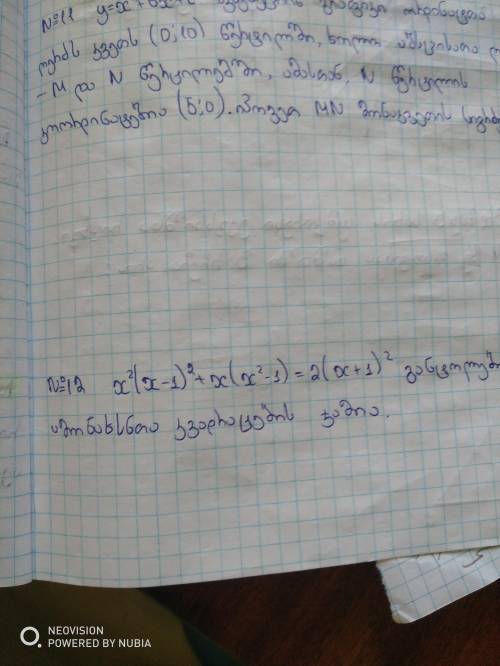 №11 y=x
ღერძს კვეთს (0;10) წერტილში, ხოლო აბსცისათა
– M და N წერტილებში, ამასთან, N წერტილის
კოორდინატებია (5;0). იპოვეთ MN მონაკვეთის
№12 x²(x-1)²+x(x²-1)=2(x+1)² განტოლების
ამონახსნთა კვადრატების ჯამია.
NEOVISION
POWERED BY NUBIA